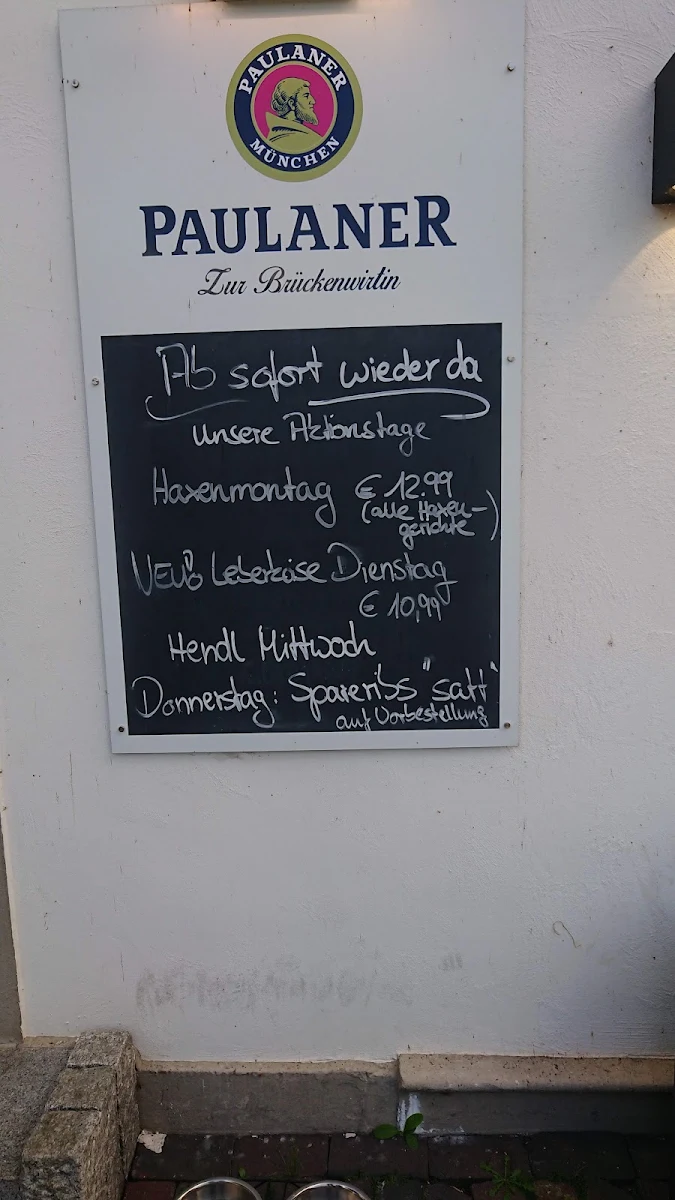 PAULANER
MÜNCHEN
PAULANER
Zur Brückenwirtin
Ab sofort wieder da
unsere Aktionstage
Haxenmontag € 12.99
(alle Haxen-
gerichte)
NEU! Leberkäse Dienstag
€ 10,99
Hendl Mittwoch
Donnerstag: Spareribs "satt"
auf Vorbestellung